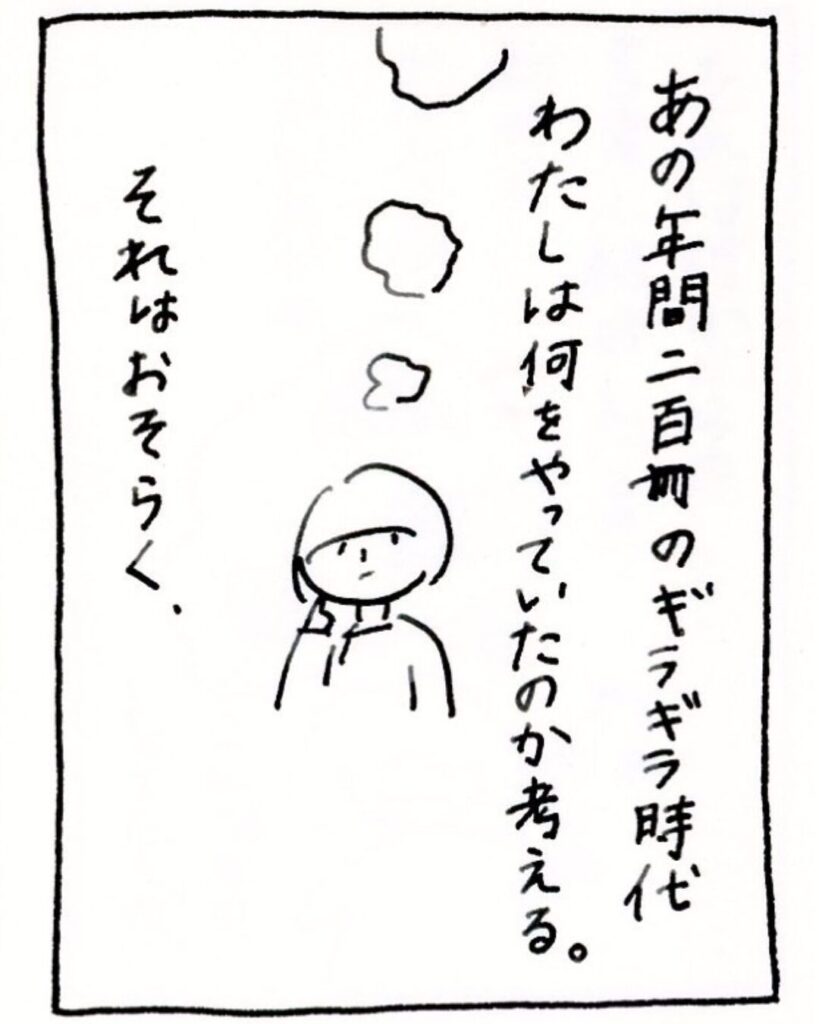 あの年間二百冊のギラギラ時代
わたしは何をやっていたのか考える。
それはおそらく、